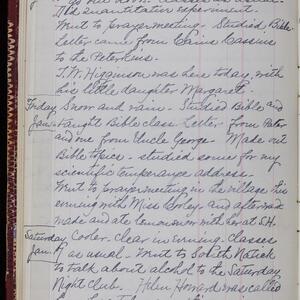 Went to prayermeeting. Studied Bible
Letter came from Carrie Cassino
to the Peterkins.
T.W. Higginson was here today, with
his little daughter Margaret.
Friday Snow and rain. Studied Bible and
Jan. taught Bible class. Letter from Peter
and one from Uncle George. Made out
Bible topics - studied some for my
scientific temperance address.
Went to prayermeeting in the village this
evening with Miss and afterward
made and ate lemonsnow with her at S.H.
Saturday Cooler. clear in evening. Classes
Jan. 8 as usual. Went to South Natick
to talk about alcohol to the Saturday
Night club. Helen Howard was called